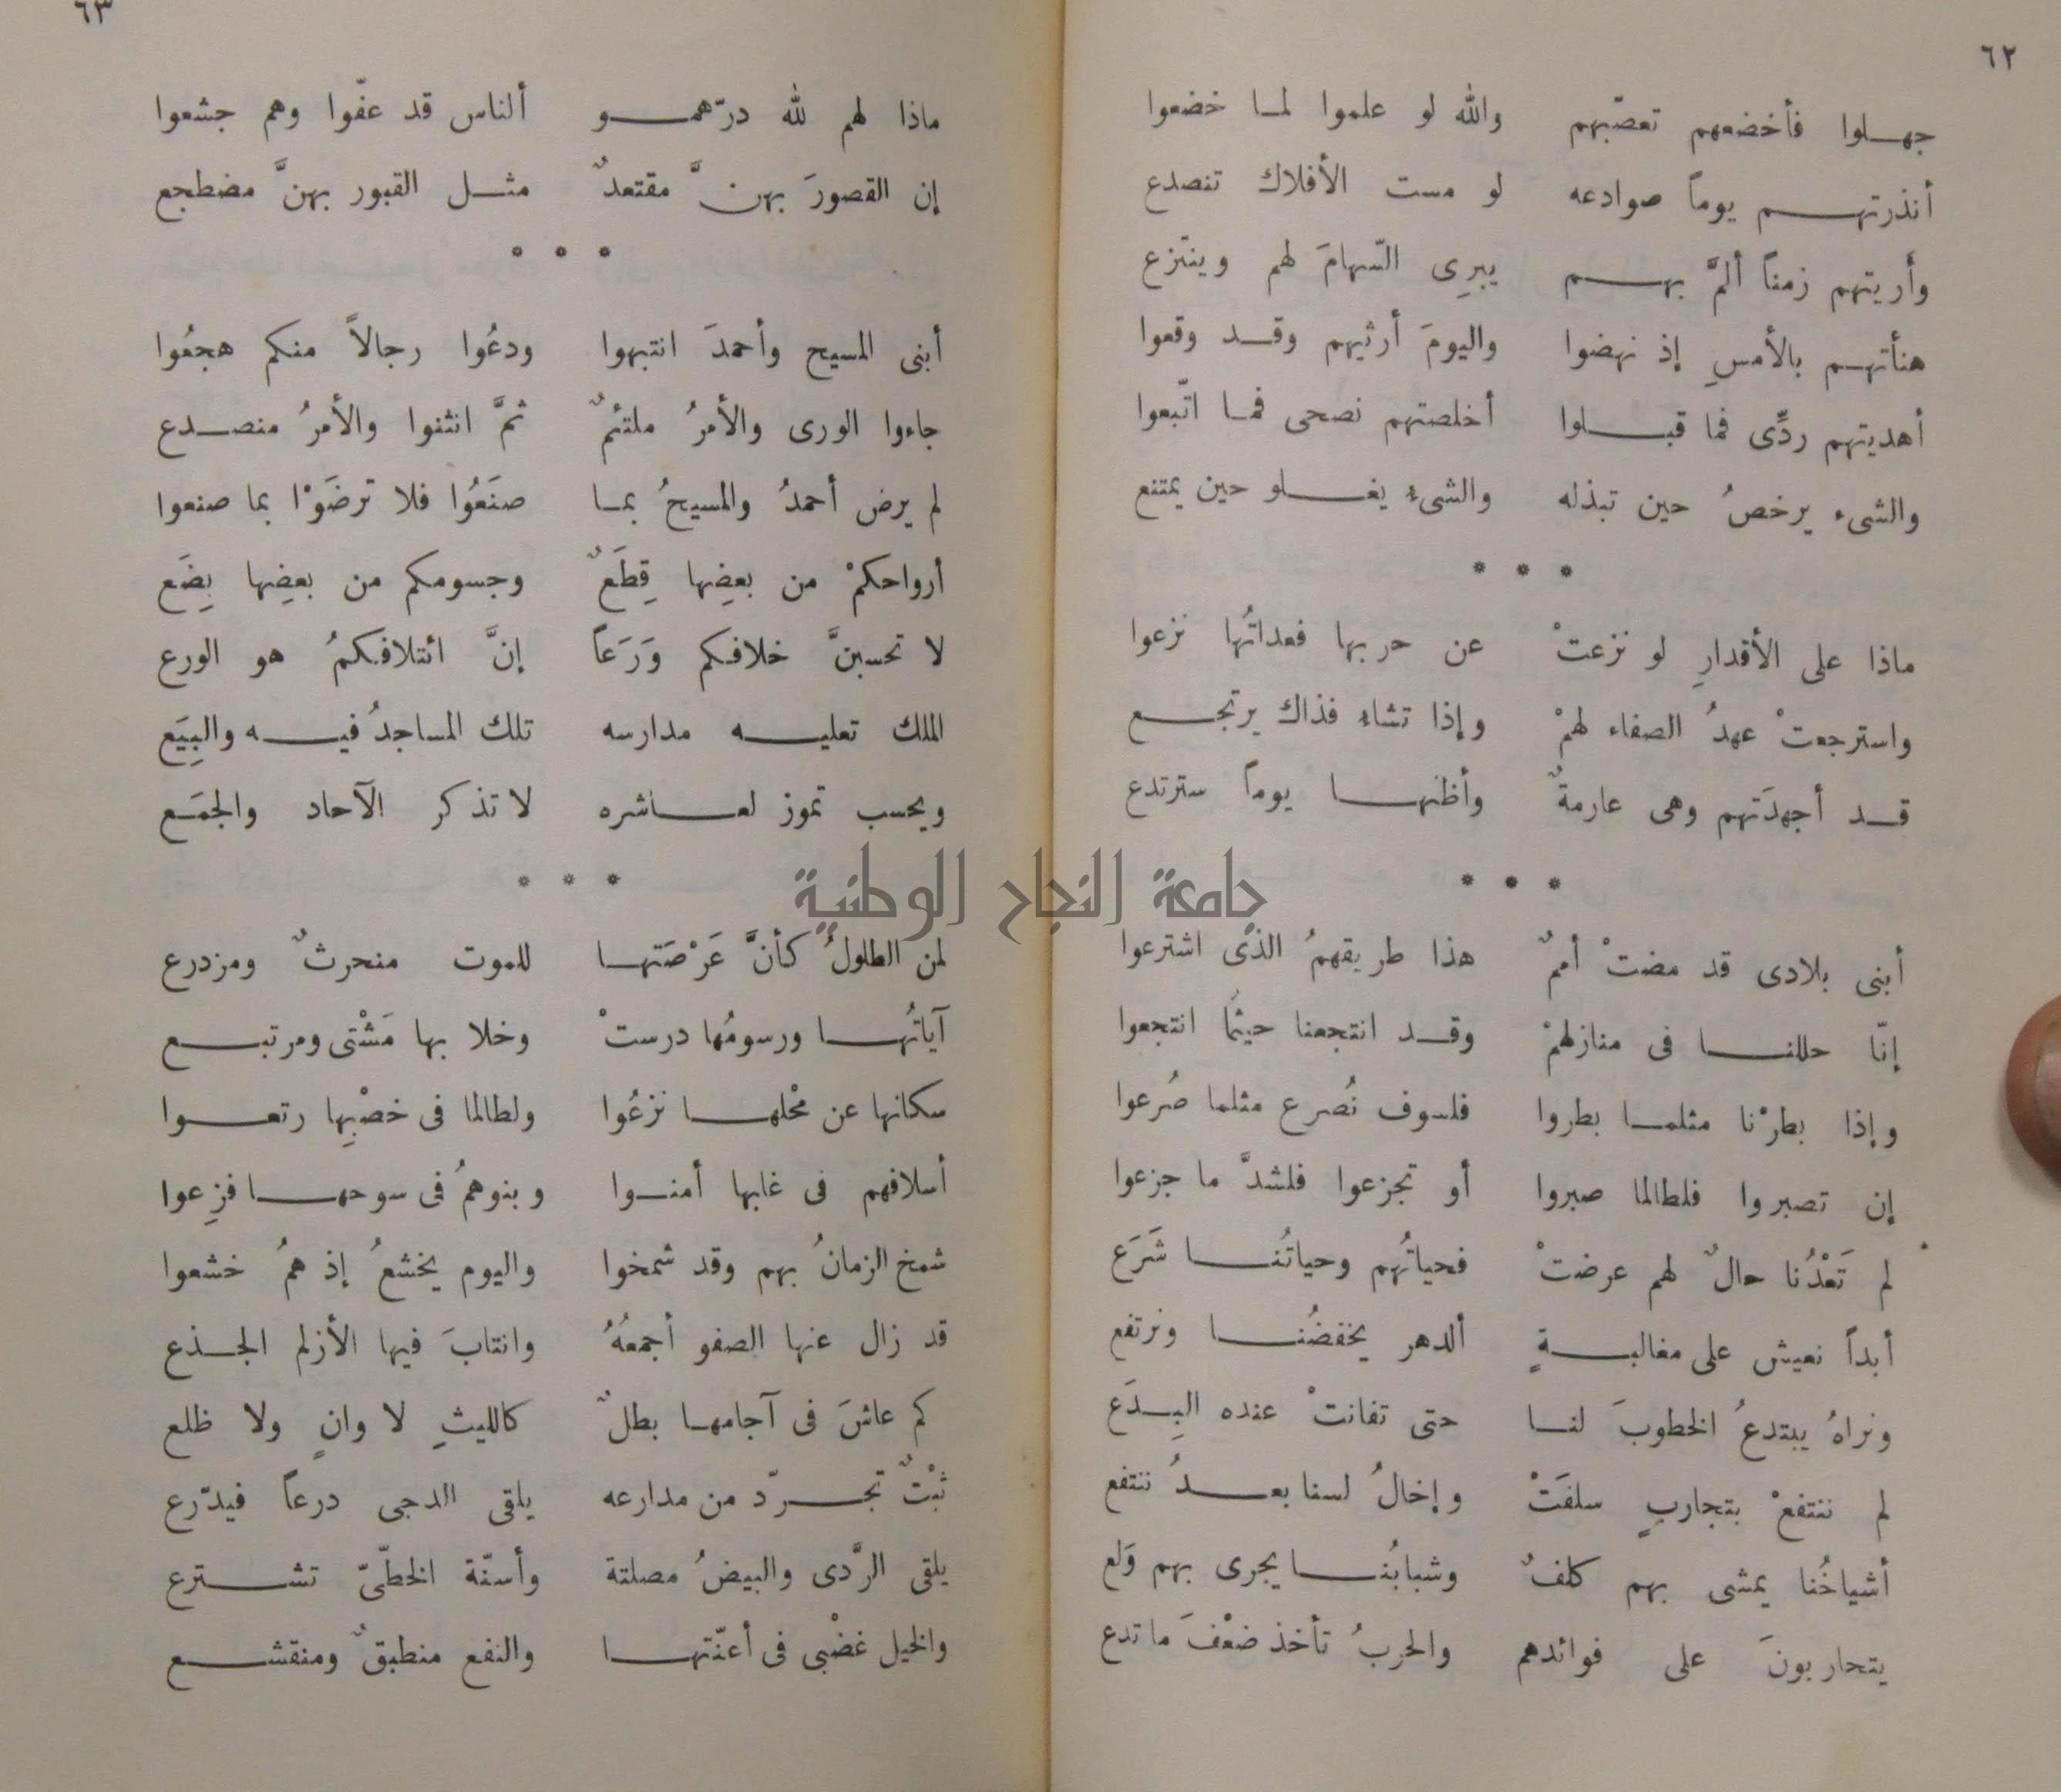 ٦٢
جهلوا فأخضعهم تعصّبهم والله لو علموا لما خضعوا
أنذرتهم يوماً صوادعه لو مست الأفلاك تنصدع
وأريتهم زمناً ألمَّ بهم يبرِى السّهامَ لهم وينتزع
هنأتهم بالأمسِ إذ نهضوا واليومَ أرثيهم وقد وقعوا
أهديتهم ردِّى فما قبلوا أخلصتهم نصحى فما اتّبعوا
والشىء يرخصُ حين تبذله والشىءِ يغلو حين يمتنع
* * *
ماذا على الأقدارِ لو نزعتْ عن حربها فعداتُها نزعوا
واسترجعتْ عهدُ الصفاء لهمْ وإذا تشاء فذاك يرتجع
قد أجهدَتهم وهى عارمةٌ وأظنها يوماً سترتدع
* * *
أبنى بلادى قد مضتْ أممٌ هذا طريقهمُ الذى اشترعوا
إنّا حللنا فى منازلهمْ وقد انتجعنا حيثُما انتجعوا
وإذا بطرْنا مثلما بطروا فلسوف نُصرع مثلما صُرعوا
إن تصبروا فلطالما صبروا أو تجزعوا فلشدَّ ما جزعوا
لم تَعْدُنا حالٌ لهم عرضتْ فحياتُهم وحياتُنا شَرَع
أبداً نعيش على مغالبةٍ ألدهر يخفضُنا ونرتفع
ونراهُ يبتدعُ الخطوبَ لنا حتى تفانتْ عنده البِدَع
لم ننتفعْ بتجاربٍ سلفَتْ وإخالُ لسنا بعدُ ننتفع
أشياخُنا يمشى بهم كلفٌ وشبابُنا يجرى بهم وَلع
يتحاربونَ على فوائدهم والحربُ تأخذ ضعْفَ ما تدع
٦٣
ماذا لهم لله درّهمو ألناس قد عفّوا وهم جشعوا
إن القصورَ بهنَّ مقتعدٌ مثل القبور بهنَّ مضطجع
* * *
أبنى المسيح وأحمدَ انتبهوا ودعُوا رجالاً منكم هجعُوا
جاءوا الورى والأمرُ ملتئمٌ ثمَّ انثنوا والأمرُ منصدع
لم يرض أحمدُ والمسيحُ بما صنَعُوا فلا ترضَوْا بما صنعوا
أرواحكمْ من بعضِها قِطَعٌ وجسومكم من بعضِها بِضَع
لا تحسبنَّ خلافكم وَرَعاً إنَّ ائتلافكمُ هو الورع
الملك تعليه مدارسه تلك المساجدُ فيه والبِيَع
ويحسب تموز لعاشره لا تذكر الآحاد والجمَع
* * *
لمن الطلولُ كأنَّ عَرْصَتها للموت منحرثٌ ومزدرع
آياتُها ورسومُها درستْ وخلا بها مَشْتى ومرتبع
سكانها عن محْلها نزعُوا ولطالما فى خصْبِها رتعوا
أسلافهم فى غابها أمنوا وبنوهمُ فى سوحها فزِعوا
شمخ الزمانُ بهم وقد شمخوا واليوم يخشعُ إذ همُ خشعوا
قد زال عنها الصفو أجمعُهُ وانتابَ فيها الأزلم الجذع
كم عاشَ فى آجامها بطلٌ كالليثِ لا وانٍ ولا ظلع
ثبْتٌ تجرّد من مدارعه يلقى الدجى درعاً فيدّرع
يلقى الرَّدى والبيضُ مصلتة وأسنّة الخطّىّ تشترع
والخيل غضْبى فى أعنّتها والنقع منطبقٌ ومنقشع
جامعة النجاح الوطنية